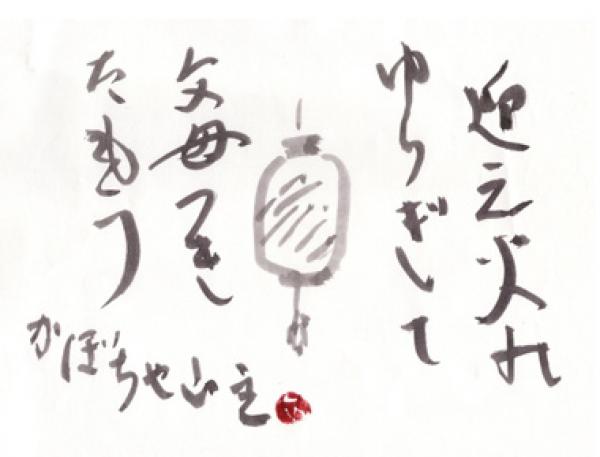 迎え火の
ゆらぎして
父母つき
たもう
かぼちゃ山主